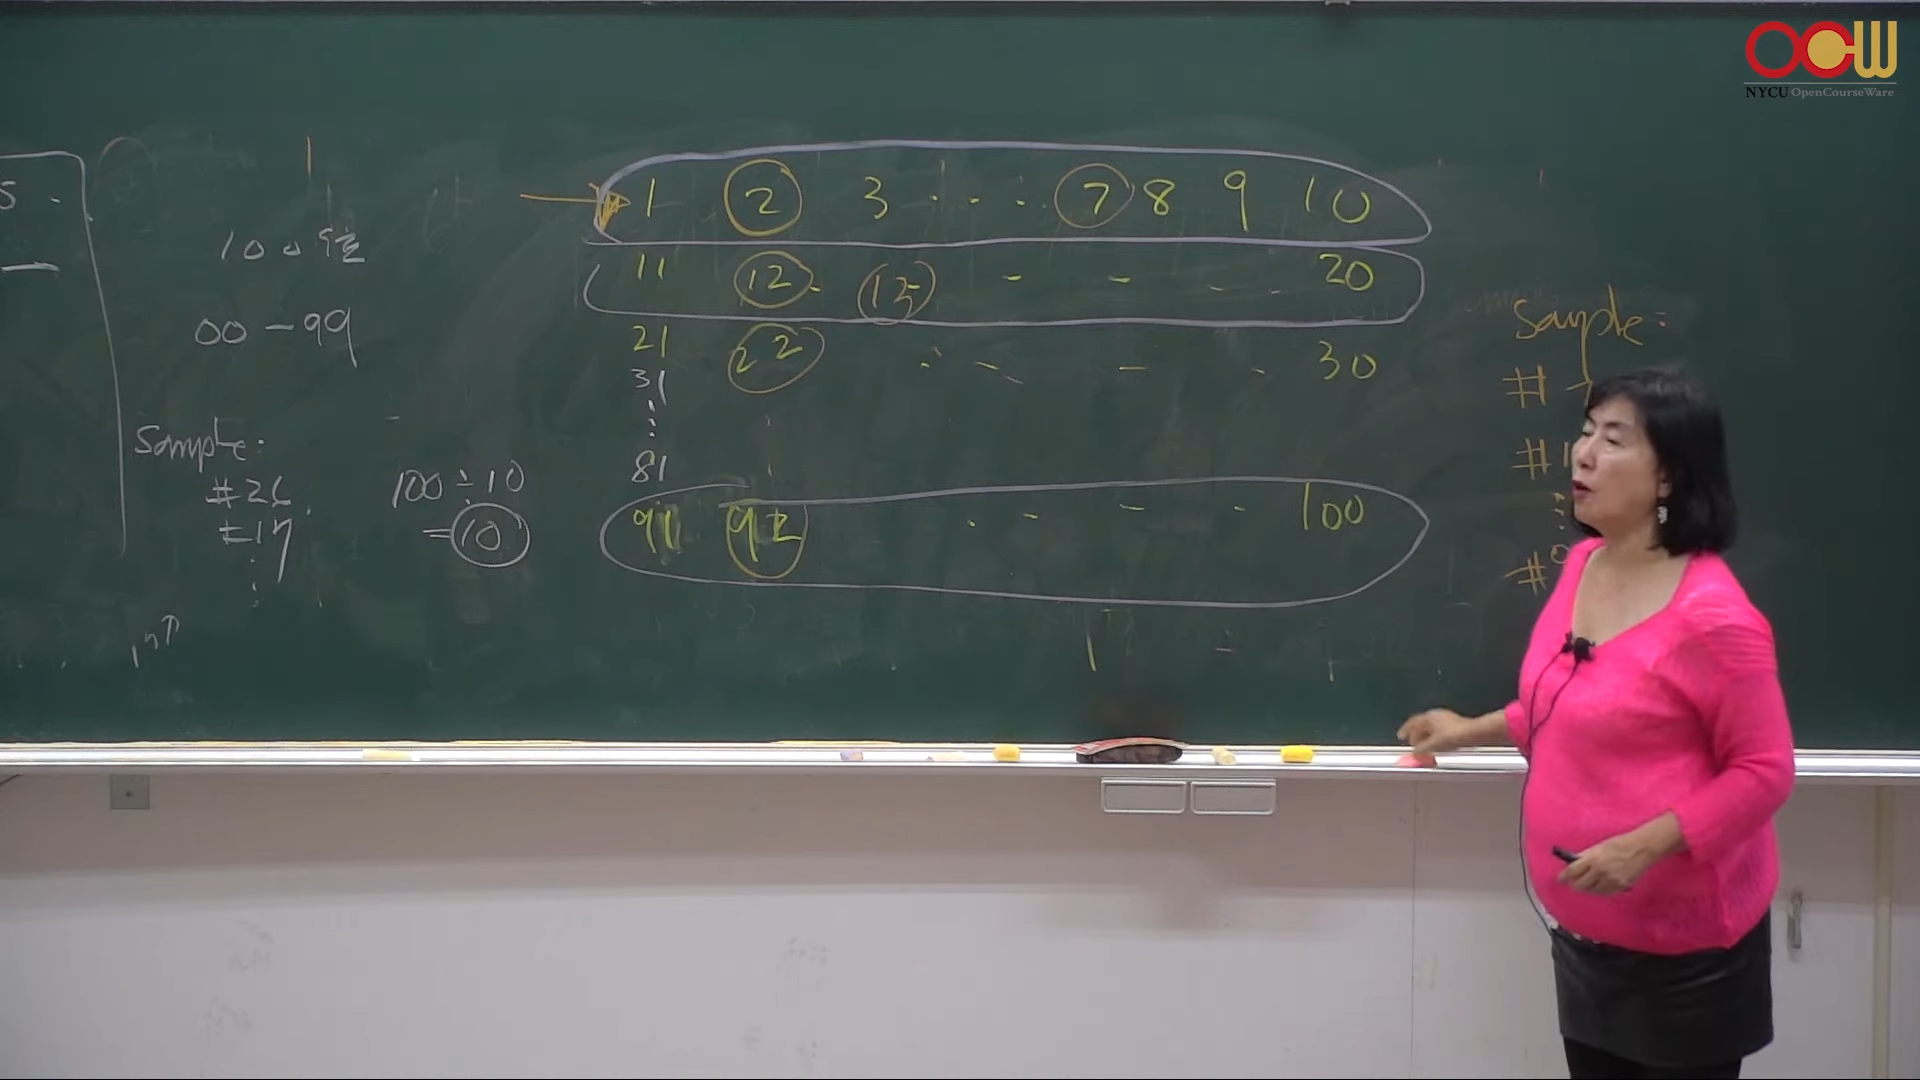 OCW
NYCU OpenCourseWare
5
100 位
00 - 99
Sample:
#26
#17
100 ÷ 10
= 10
1 2 3 ... 7 8 9 10
11 12 13 - - - 20
21 22 - - - 30
31
81
91 92 - - - 100
Sample:
#
#1
#